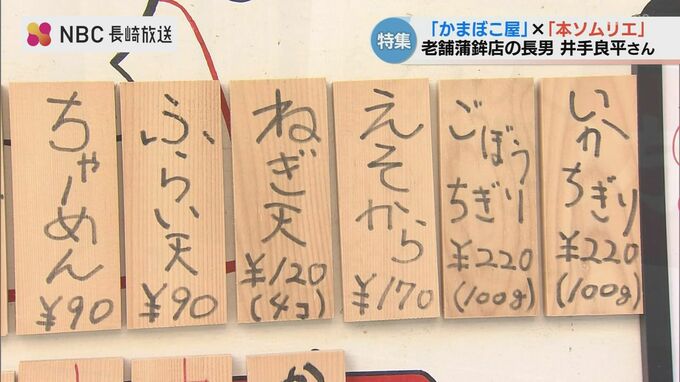 NBC 長崎放送
特集
「かまぼこ屋」×「本ソムリエ」
老舗蒲鉾店の長男 井手良平さん
いか
ちぎり
¥220
(100g)
ごぼう
ちぎり
¥220
(100g)
えそから
¥170
ねぎ天
¥120
(4コ)
ふらい天
¥90
ちゃーめん
¥90
か